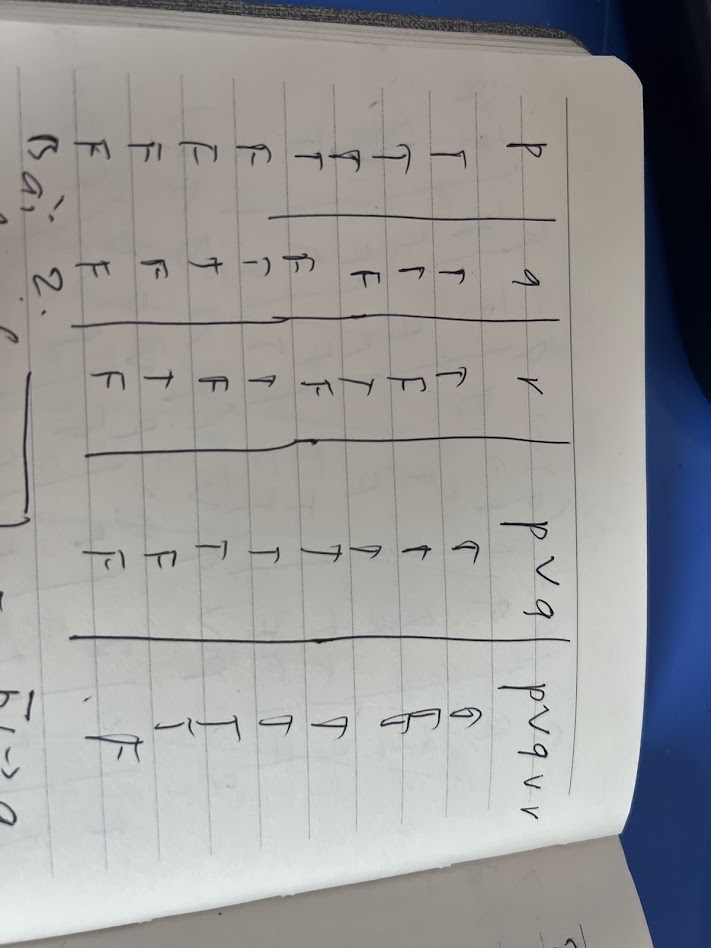 p q r p∨q p∨q∨r
T T T T T
T T F T T
T F T T T
T F F T T
F T T T T
F T F T T
F F T F T
F F F F F
Bài 2.